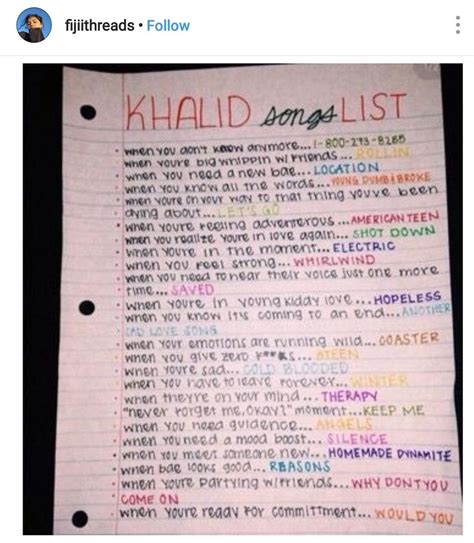 fijiithreads • Follow
KHALID songs LIST
when you don't know anymore...1-800-273-8255
when youre big whippin w/ friends... ROLLIN
when you need a new bae... LOCATION
when you know all the words... YOUNG DUMB & BROKE
when youre on your way to that thing youve been
dying about... LET'S GO
when youre feeling adventerous... AMERICAN TEEN
when you realize youre in love again... SHOT DOWN
when youre in the moment... ELECTRIC
when you feel strong... WHIRLWIND
when you need to hear their voice just one more
time... SAVED
when youre in young kiddy love... HOPELESS
when you know its coming to an end... ANOTHER
SAD LOVE SONG
when your emotions are running wild... COASTER
when you give zero f***s... 8TEEN
when youre sad... COLD BLOODED
when you have to leave forever... WINTER
when theyre on your mind... THERAPY
"never forget me, okay?" moment... KEEP ME
when you need guidence... ANGELS
when you need a mood boost... SILENCE
when you meet someone new... HOMEMADE DYNAMITE
when bae looks good... REASONS
when youre partying w/friends... WHY DONT YOU
COME ON
when youre ready for committment... WOULD YOU